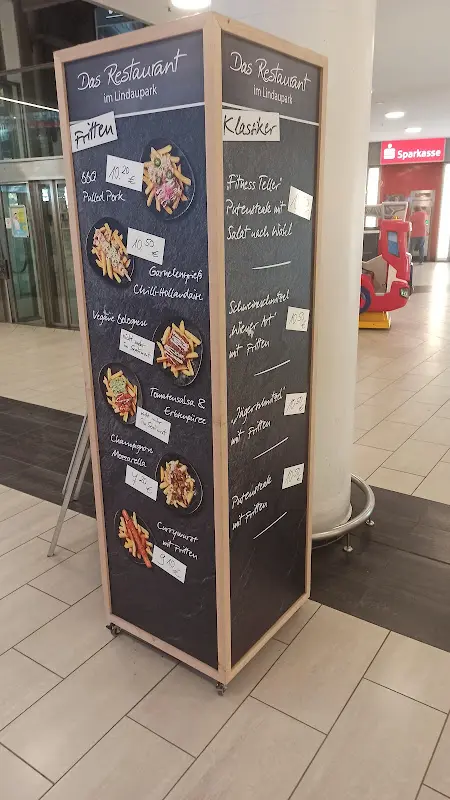 Das Restaurant
im Lindaupark
Fritten
BBQ
Pulled Pork
10.20
€
10.50
€
Garnelenspieß
Chilli-Hollandaise
Vegane Bolognese
nicht mehr
im Sortiment
Tomatensalsa &
Erbsenpüree
nicht mehr
im Sortiment
Champignon
Mozzarella
9.20
€
Currywurst
mit Fritten
9.10 €
Das Restaurant
im Lindaupark
Klassiker
"Fitness Teller"
Putensteak mit
Salat nach Wahl
Schweineschnitzel
"Wiener Art"
mit Fritten
"Jägerschnitzel"
mit Fritten
Putensteak
mit Fritten
Sparkasse